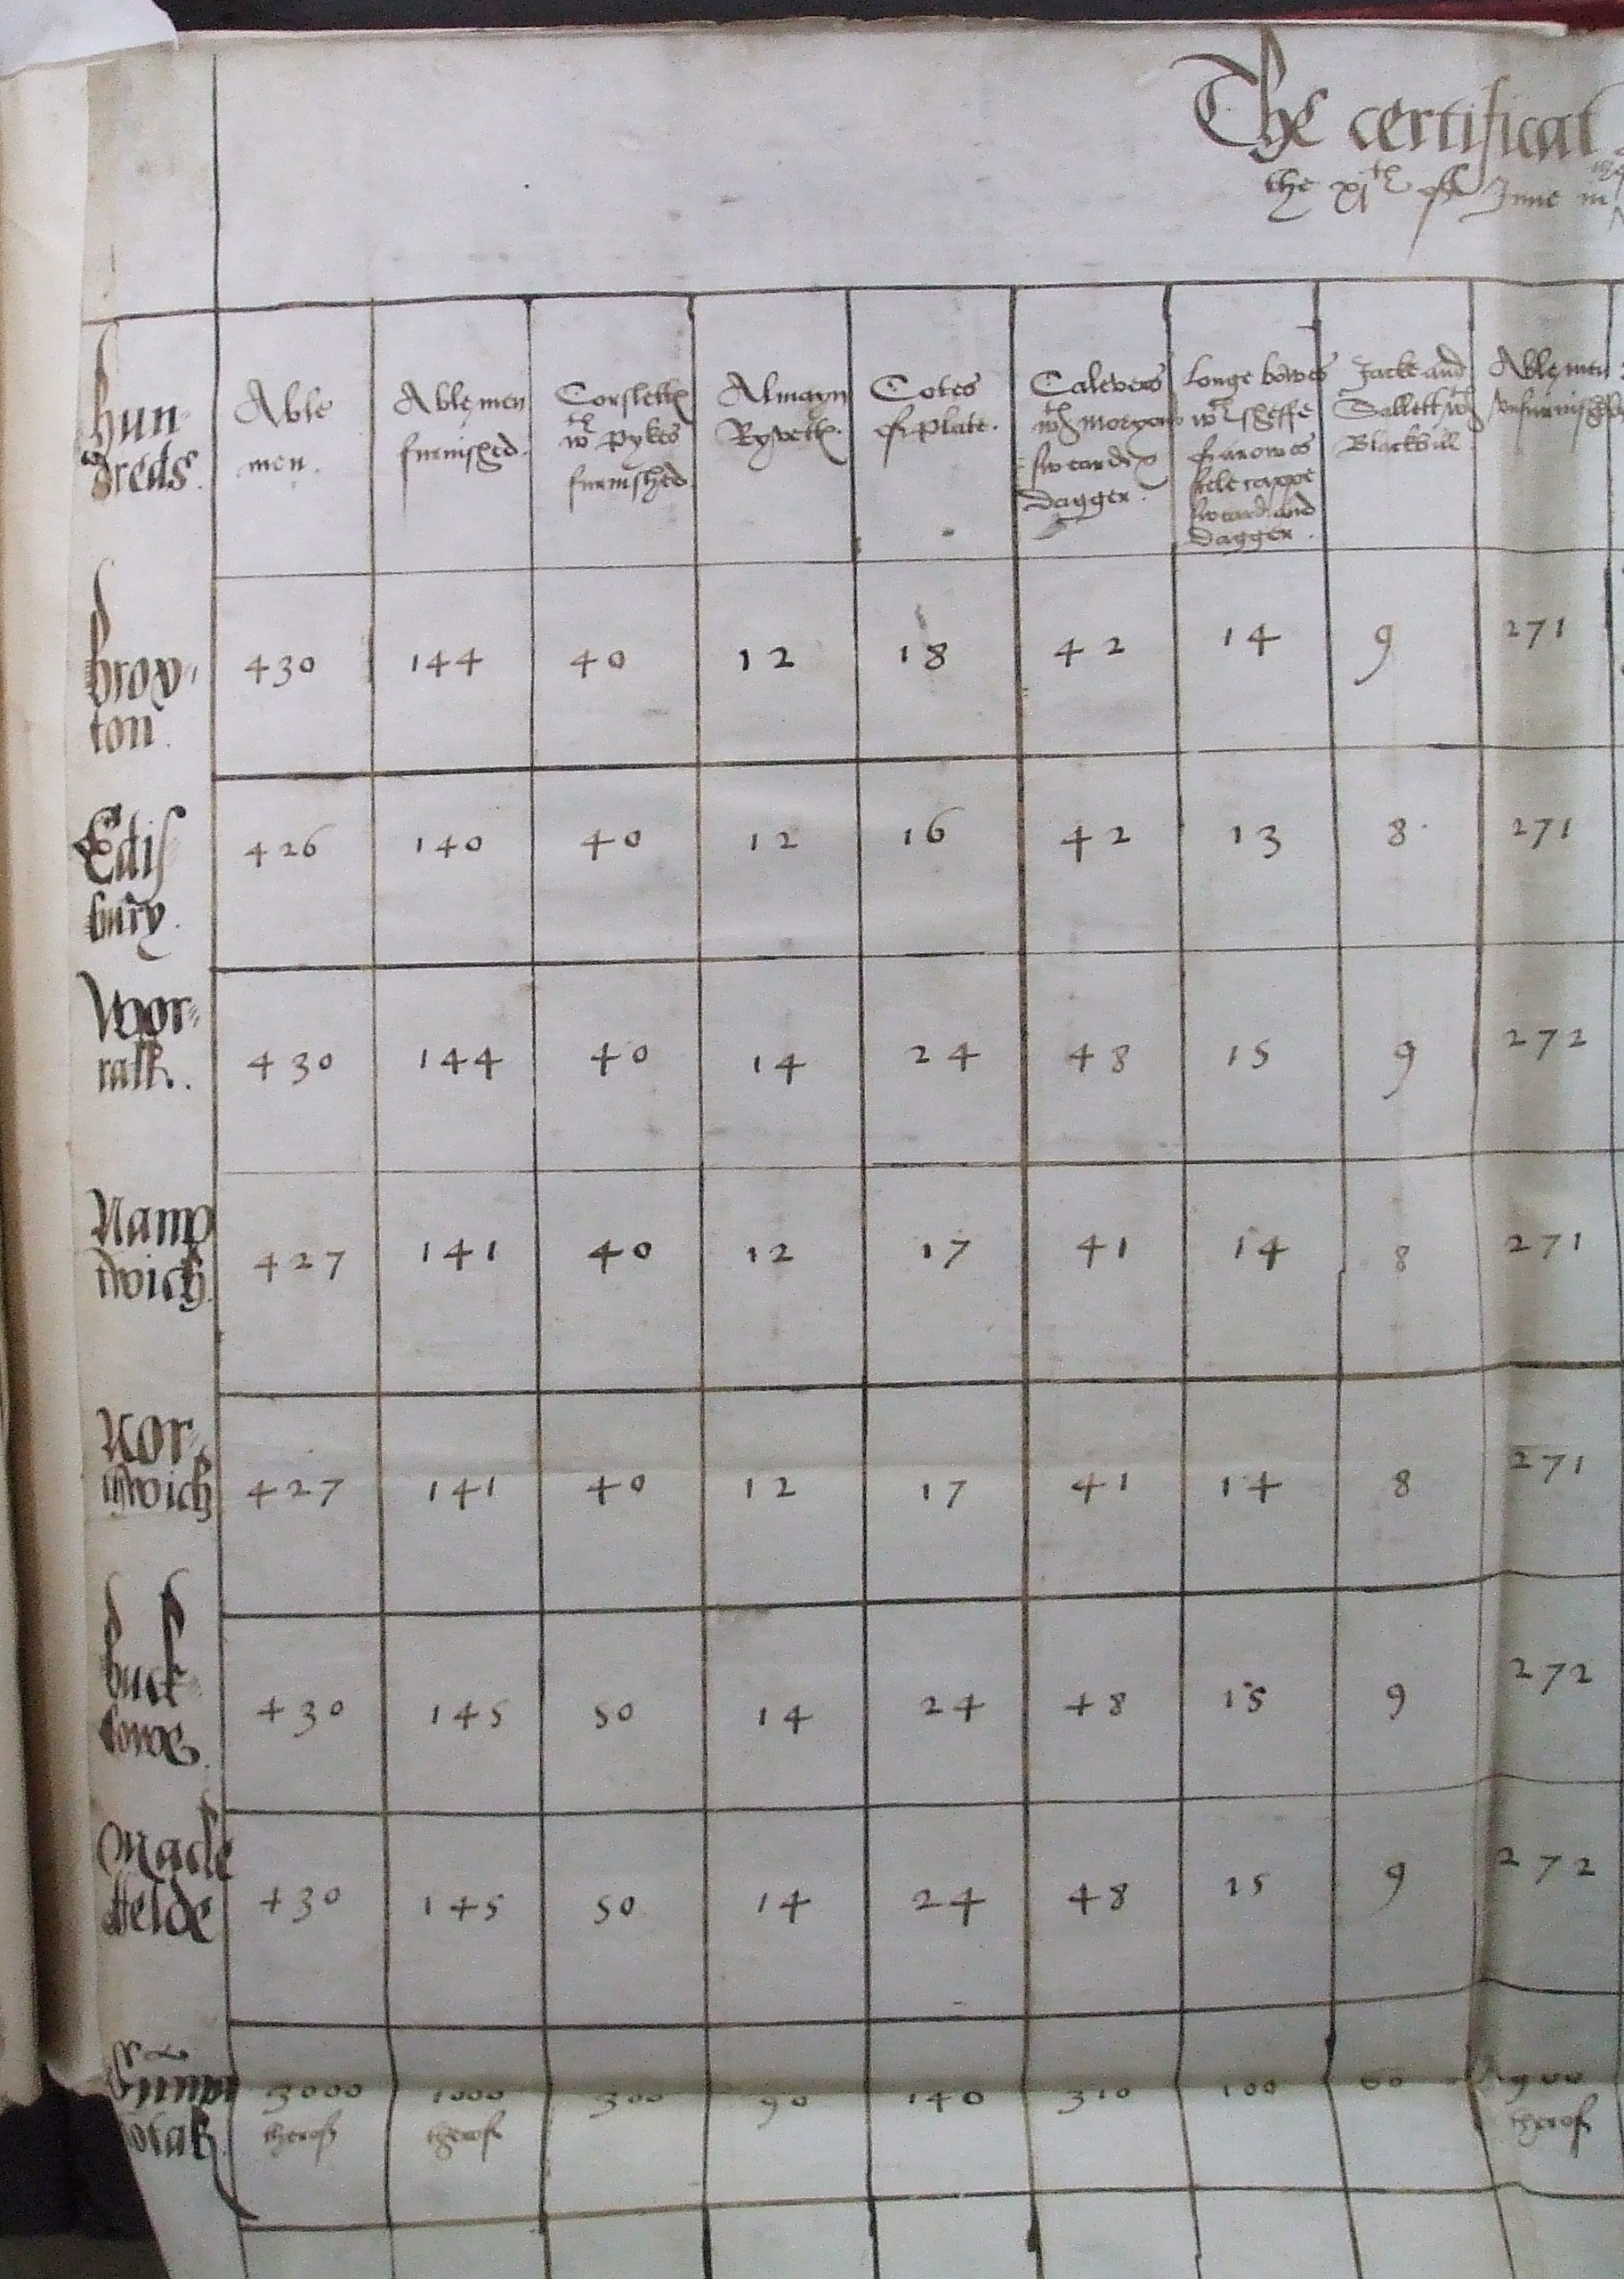 The certificat
the xjth of June in
hun-
dreds.
Able
men.
Able men
furnished.
Corslettes
wth pykes
furnished
Almayn
Ryvettes.
Cotes
of plate.
Calevers
wth moryons
sweard &
dagger.
Longe bowes
wth sheffe
of arowes
stele cappe
sweard and
dagger.
Jacke and
Sallett wth
Blackbill
Able men
unfurnished
brox-
ton.
430 144 40 12 18 42 14 9 271
Edis=
bury.
426 140 40 12 16 42 13 8 271
Wor=
rall.
430 144 40 14 24 48 15 9 272
Namp
twich.
427 141 40 12 17 41 14 8 271
Nor=
twich
427 141 40 12 17 41 14 8 271
buck=
lowe.
430 145 50 14 24 48 15 9 272
Macle
ffelde
430 145 50 14 24 48 15 9 272
Summa
totalis
3000 1000 300 90 140 310 100 60 900
therof therof therof